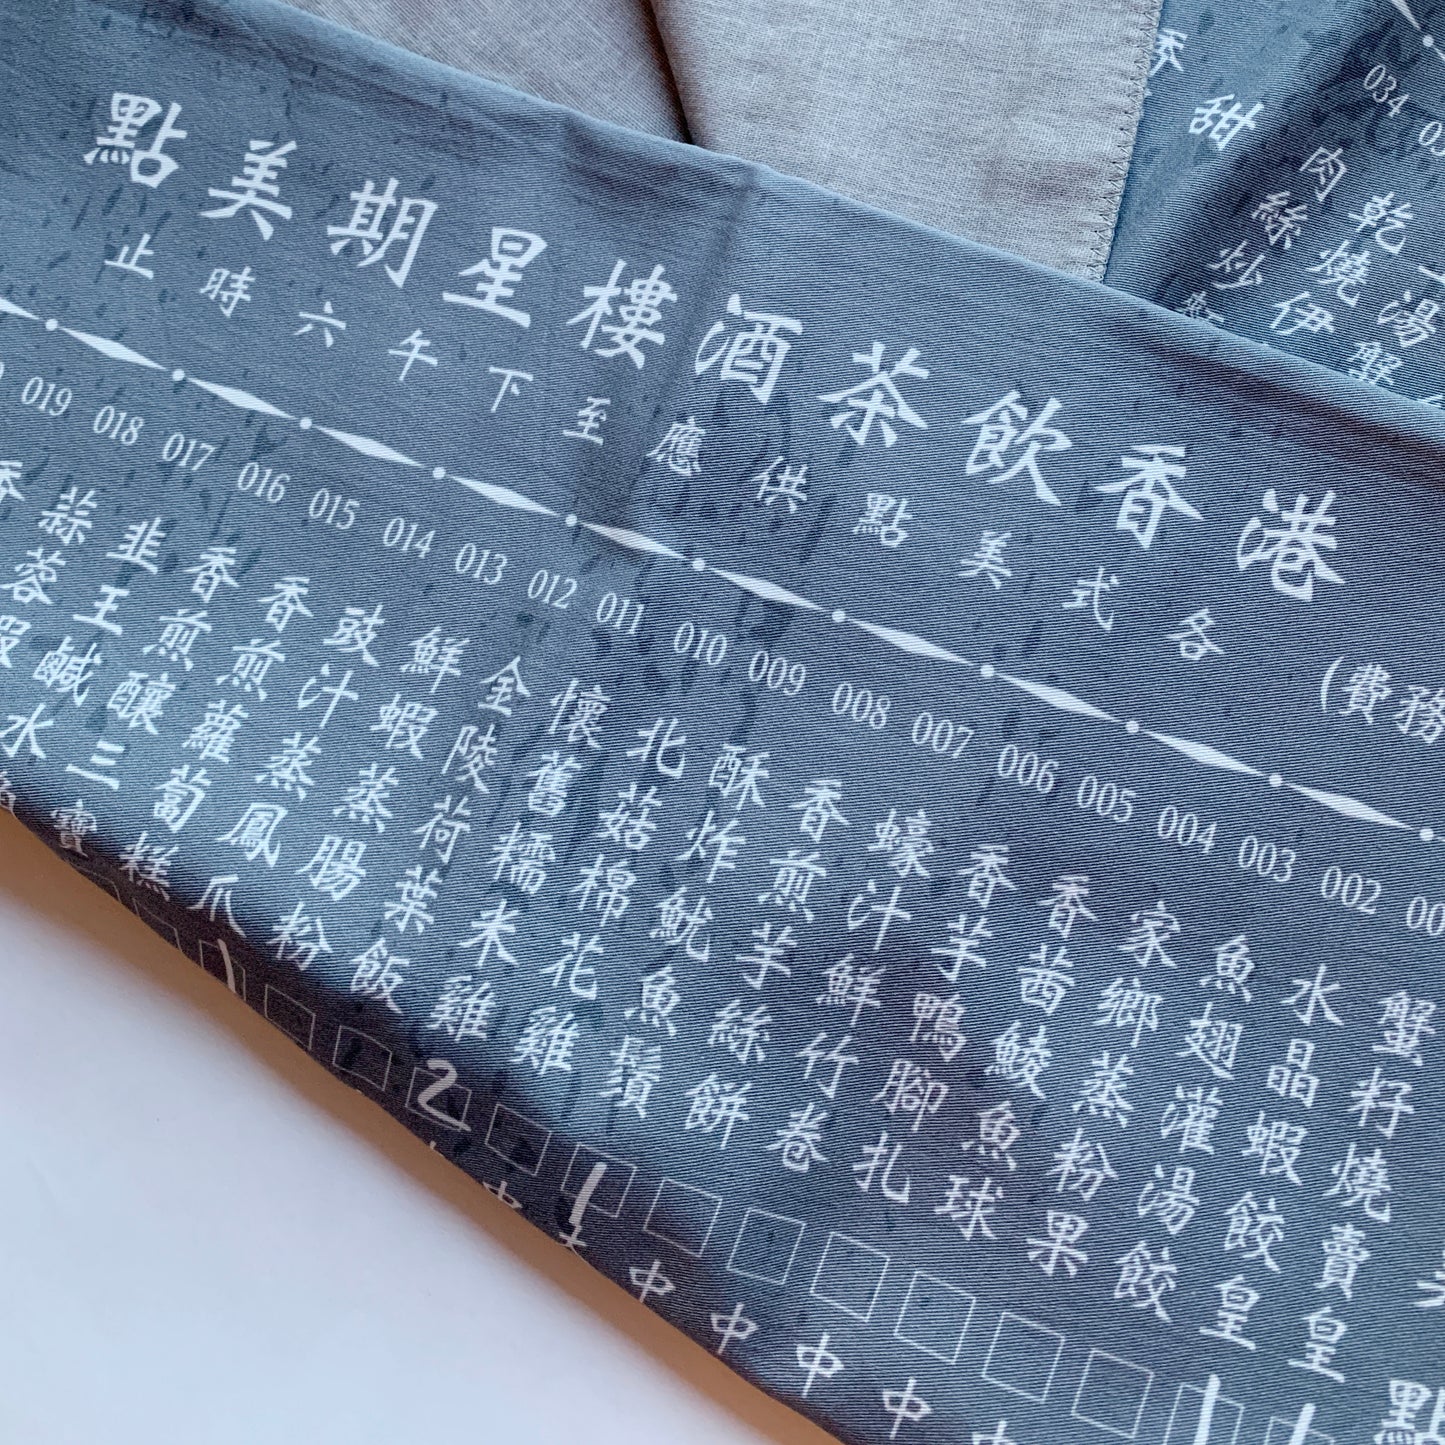 港香飲茶酒樓星期美點
各式美點供應至下午六時止
(費務
002 003 004 005 006 007 008 009 010 011 012 013 014 015 016 017 018 019
蟹籽燒賣皇
水晶蝦餃皇
魚翅灌湯餃
家鄉蒸粉果
香茜鯪魚球
香芋鴨腳扎
蠔汁鮮竹卷
香煎芋絲餅
酥炸魷魚鬚
北菇棉花雞
懷舊糯米雞
金陵荷葉飯
鮮蝦蒸腸粉
豉汁蒸鳳爪
香煎蘿蔔糕
香煎釀三寶
韭王鹹水
蒜蓉蝦
香
2
1
中 中 中 中 中
點
034
湯蟹
乾燒伊
肉絲炒
甜
香